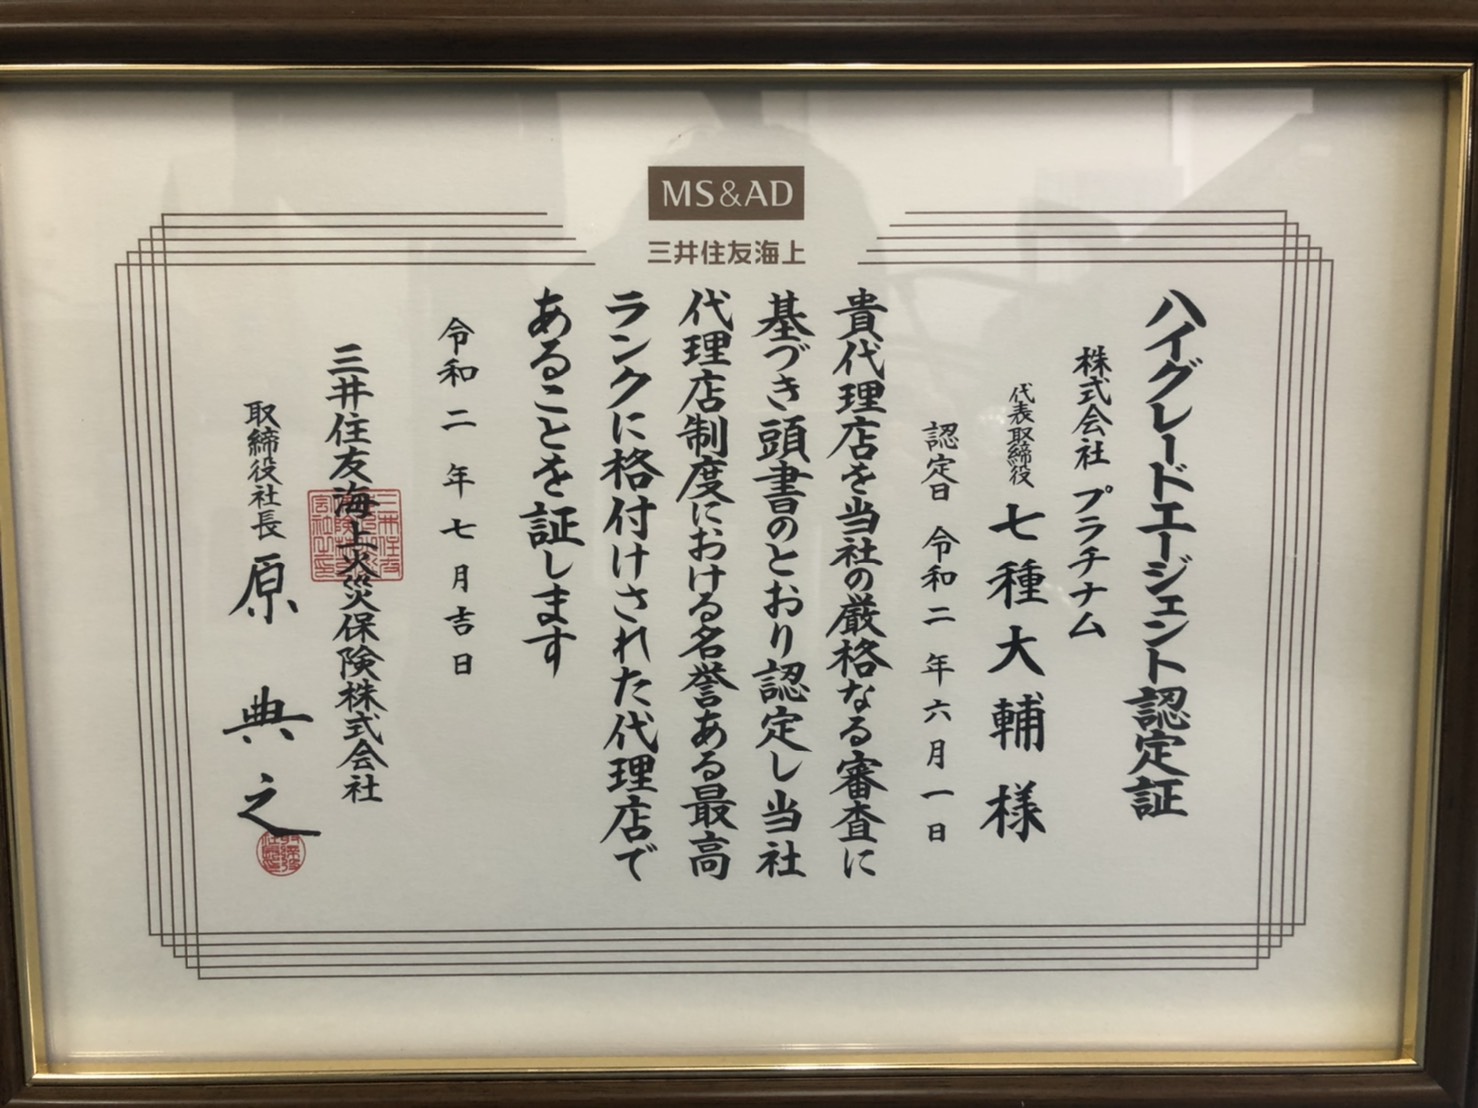 MS&AD
三井住友海上
ハイグレードエージェント認定証
株式会社 プラチナム
代表取締役 七種大輔様
認定日 令和二年六月一日
貴代理店を当社の厳格なる審査に
基づき頭書のとおり認定し当社
代理店制度における名誉ある最高
ランクに格付けされた代理店で
あることを証します
令和二年七月吉日
三井住友海上火災保険株式会社
取締役社長 原典之